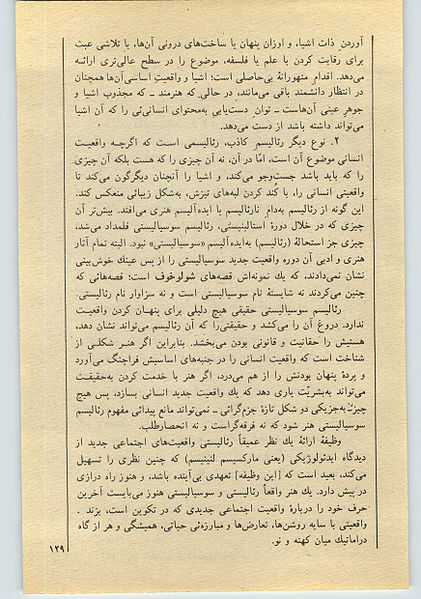 آوردن ذات اشیا، و اوزان پنهان یا ساخت‌های درونی آن‌ها، با تلاشی عبث
برای رقابت کردن با علم یا فلسفه، موضوع را در سطح عالی‌تری ارائـه
می‌دهد. اقدام متهورانهٔ بی‌حاصلی است؛ اشیا و واقعیتِ اساسی‌آن‌ها همچنان
در انتظار دانشمند باقی می‌مانند، در حالی که هنرمند ـ که مجذوب اشیا و
جوهرِ عینی آن‌هاست ـ توان دست‌یابی به‌محتوای انسانی‌ئی را که آن اشیا
می‌تواند داشته باشد از دست می‌دهد.
۲. نوع دیگر رئالیسم کاذب، رئالیسمی است که اگرچـه واقعیـت
انسانی موضوع آن است، امّا در آن، نه آن چیزی را که هست بلکه آن چیزی
را که باید باشد جست‌وجو می‌کند، و اشیا را آنچنان دیگرگون می‌کند تا
واقعیتی انسانی را، با کُند کردن لبه‌های تیزش، به‌شکل زیبائی منعکس کند.
این گونه از رئالیسم به‌دام نارئالیسم یا ایده‌آلیسم هنری می‌افتد. بیش‌تر آن
چیزی که در خلال دورهٔ استالینیستی، رئالیسم سوسیالیستی قلمداد می‌شد،
چیزی جز استحالهٔ (رئالیسم) به‌ایده‌آلیسم «سوسیالیستی» نبود. البته تمام آثار
هنری و ادبی آن دوره واقعیت جدید سوسیالیستی را از پس عینك خوش‌بینی
نشان نمی‌دادند، که یك نمونه‌اش قصه‌های شولوخوف است؛ قصه‌هائی که
چنین می‌کردند نه شایستهٔ نام سوسیالیستی است و نه سزاوار نام رئالیستی.
رئالیسم سوسیالیستی حقیقی هیچ دلیلی برای پنهـان کردن واقعیـت
ندارد. دروغ آن را می‌کشد و حقیقتی‌را که آن رئالیسم می‌تواند نشان دهد،
هستیش را حقانیت و قانونی بودن می‌بخشد. بنابراین اگر هنـر شکلـی از
شناخت است که واقعیت انسانی را در جنبه‌های اساسیش فراچنگ می‌آورد
و پردهٔ پنهان بودنش را از هم می‌درد، اگر هنر با خدمت کردن به‌حقیقـت
می‌تواند به‌بشریّت یاری دهد که یك واقعیت جدید انسانی بسازد، پس هیچ
چیز‌ـ به‌جزیکی دو شکل تازهٔ جزم‌گرائی‌ـ نمی‌تواند مانع پیدائی مفهوم رئالیسم
سوسیالیستی هنر شود که نه فرقه‌گراست و نه انحصارطلب.
وظیفهٔ ارائهٔ یك نظر عمیقاً رئالیستی واقعیت‌های اجتماعی جدید از
دیدگاه ایدئولوژیکی (یعنی مارکسیسم لنینیسم) که چنین نظری را تسهیل
می‌کند، بعید است که [این وظیفه] تعهدی بی‌آینده باشد، و هنوز راه درازی
در پیش دارد. یك هنر واقعاً رئالیستی و سوسیالیستی هنوز می‌بایست آخرین
حرف خود را دربارهٔ واقعیت اجتماعی جدیدی که در تکوین است، بزند
واقعیتی با سایه روشن‌ها، تعارض‌ها و مبارزه‌ئی حیاتی، همیشگی و هر از گاه
دراماتیك میان کهنه و نو.
۱۲۹